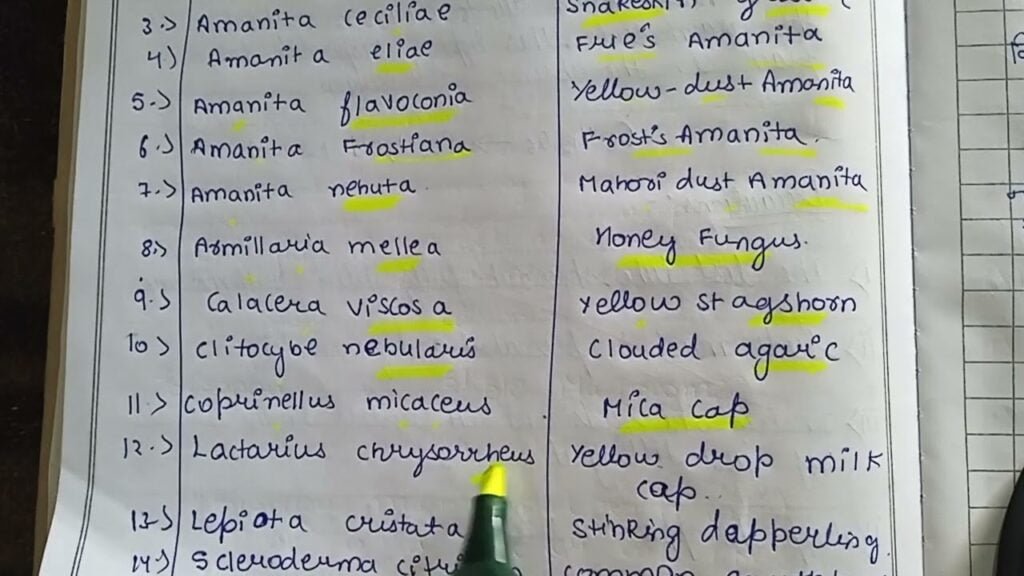 3.) Amanita ceciliae
4) Amanita eliae Frie's Amanita
5.) Amanita flavoconia Yellow-dust Amanita
6.) Amanita Frostiana Frost's Amanita.
7.) Amanita nehuta. Mahori dust Amanita
8.) Armillaria mellea Honey Fungus.
9.) Calacera viscosa Yellow stagshorn
10) Clitocybe nebularis Clouded agaric
11.) Coprinellus micaceus Mica cap
12.) Lactarius chrysorrheus Yellow drop milk
cap..
13.) Lepiota cristata Stinking dapperling.
14.) Scleroderma